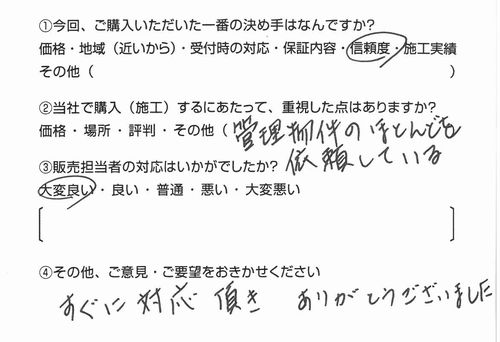 ①今回、ご購入いただいた一番の決め手はなんですか?
価格・地域（近いから）・受付時の対応・保証内容・信頼度・施工実績
その他（　　　）
②当社で購入（施工）するにあたって、重視した点はありますか?
価格・場所・評判・その他（管理物件のほとんどを
依頼している
③販売担当者の対応はいかがでしたか?
大変良い・良い・普通・悪い・大変悪い
④その他、ご意見・ご要望をおきかせください
すぐに対応頂き ありがとうございました